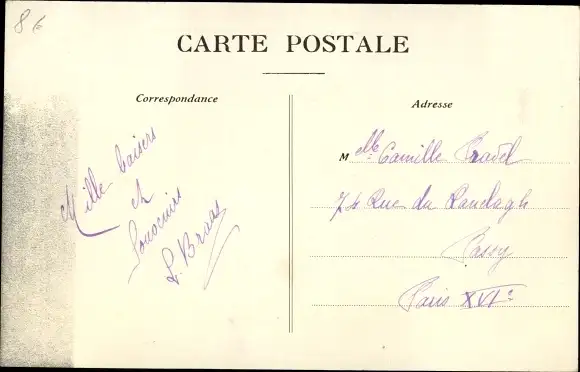 8 €
CARTE POSTALE
Correspondance
Mille baisers
et
Souvenirs
L. Braas
Adresse
M lle Camille Pradel
74 Rue du Ranelagh
Passy
Paris XVIe